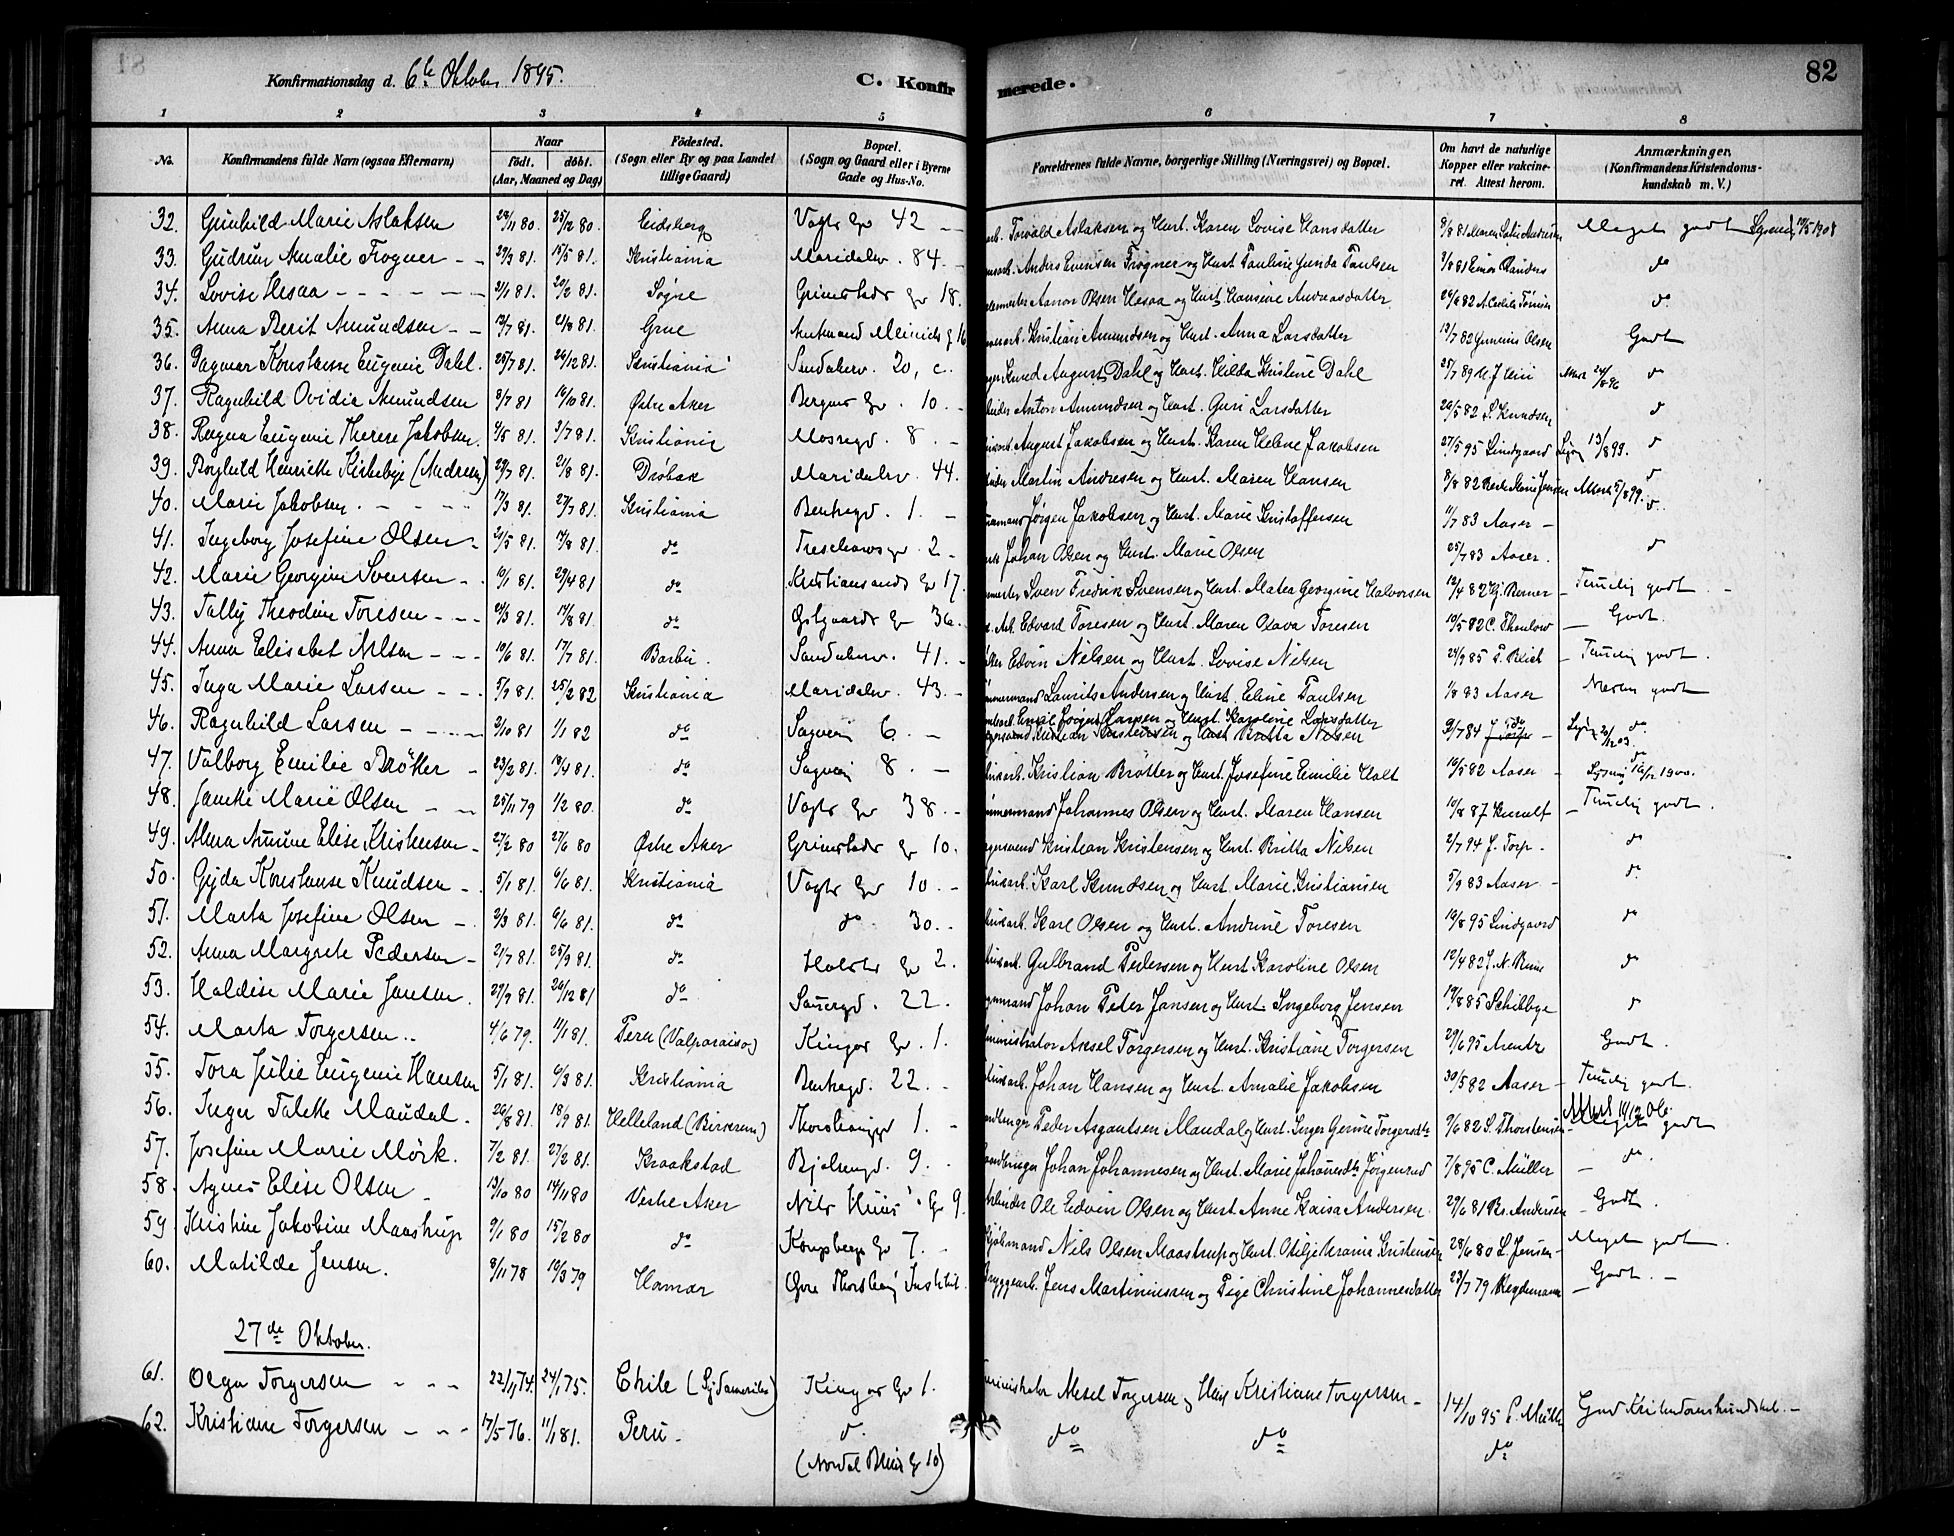 81
Konfirmationsdag d. 6te Oktober 1895.
C. Konfirmerede.
82
1 2 3 4 5 6 7 8
No. Konfirmandens fulde Navn (ogsaa Efternavn) Naar födt. döbt. (Aar, Maaned og Dag) Födested. (Sogn eller By og paa Landet tillige Gaard) Bopæl. (Sogn og Gaard eller i Byerne Gade og Hus-No. Forældrenes fulde Navne, borgerlige Stilling (Næringsvei) og Bopæl. Om havt de naturlige Kopper eller vakcineret. Attest herom. Anmærkninger, (Konfirmandens Kristendomskundskab m. V.)
32. Gunhild Marie Aslaksen 25/12 80. Eidsberg Vogts Gd 42 Torvald Aslaksen og Hust. Karen Lovise Hansdatter Meget godt
33. Gudrun Amalie Frogner 29/3 81. 15/5 81. Kristiania Maridalsv. 84. Anders Evensen Frogner og Hust Pauline Gunda Paulsen do
34. Lovise Hesaa 2/1 81. 20/2 81. Søgne Grimstads gd 18. Aanon Olsen Hesaa og Hust Hansine Andreasdatter do
35. Anna Berit Amundsen 13/7 81. 21/8 81. Grue Amtmand Meinichs g 16 Kristian Amundsen og Hust. Anna Larsdatter 13/7 82 Gunerius Olsen Godt
36. Dagmar Konstanse Eugenie Dahl. 25/7 81. 26/12 81. Kristiania Sandakerv. 20, c. Knud August Dahl og Hust. Hilda Kristine Dahl do
37. Ragnhild Ovidia Amundsen 8/7 81 16/10 81. Østre Aker Bergens Gd. 10. Anton Amundsen og Hust. Guri Larsdatter 26/5 82 S. Knudsen d
38. Ragna Eugenie Therese Jakobsen. 4/5 81. 3/7 81. Kristiania Mossegd. 8. August Jakobsen og Hust. Karen Helene Jakobsen 27/5 95 Lindgaard 13/8 99. d
39. Borghild Henriette Kirkebye (Andresen) 29/7 81. 21/8 81. Drøbak Maridalsv. 44. Martin Andresen og Hust. Maren Hansen
40. Marie Jakobsen. 17/3 81. 27/7 81. Kristiania Bentsegd. 1. Jørgen Jakobsen og Hust. Marie Kristoffersen 11/7 83 Aaser
41. Ingeborg Josefine Olsen 21/5 81. 14/8 81. do Treschowsgd. 2 Johan Olsen og Hust. Marie Olsen 25/7 83 Aaser. d
42. Marie Georgine Svensen 10/1 81. 29/4 81 do Kristiansands Gd 17. Sven Fredrik Svensen og Hust. Matea Georgine Halvorsen Temelig godt
43. Tally Theodine Toresen 21/3 81. 14/8 81. do Østgaards Gd 36. Edvard Toresen og Hust. Maren Olava Toresen 10/5 82 C. Thoulow Godt.
44. Anna Elisabet Nilsen 10/6 81. 17/7 81. Barbu. Sandakerv. 41. Edvin Nilsen og Hust. Lovise Nilsen Temelig godt.
45. Inga Marie Larsen 5/9 81. 25/2 82 Kristiania Maridalsv. 43. Laurits Andersen og Hust. Eline Paulsen 1/8 83 Aaser Meget godt
46. Ragnhild Larsen 2/10 81 1/1 82 do Sagveien 6. Emil Jørgen Larsen og Hust. Karoline Larsdatter
Kristian Kristensen og Hust Britta Nilsen do
47. Valborg Emilie Brøtter 23/2 81. 18/4 81. do Sagvei 8. Kristian Brøtter og Hust. Josefine Emilie Holt 10/5 82 Aaser
48. Jancke Marie Olsen 25/11 79 1/2 80. do Vogts Gd 38. Johannes Olsen og Hust. Maren Hansen Temelig godt.
49. Alma Amine Elise Kristensen 27/2 80 27/6 80 Østre Aker Grimstads Gd 10. Kristian Kristensen og Hust. Britta Nilsen 2/7 94 J. Torp. do
50. Gyda Konstanse Knudsen 5/1 81. 6/6 81. Kristiania Vogts Gd 10. Karl Knudsen og Hust. Marie Kristiansen 5/9 83 Aaser do
51. Marta Josefine Olsen 2/3 81. 6/6 81. do do 30. Karl Olsen og Hust. Andrine Toresen 10/8 95 Lindgaard do
52. Anna Margrete Pedersen 21/7 81. 25/9 81. do Holsts Gd 2. Gulbrand Pedersen og Hust Karoline Olsen do
53. Haldise Marie Jansen. 29/9 81. 26/12 81 do Sannergd. 22. Johan Peter Jansen og Hust. Ingeborg Jensen 19/8 85 Schibbye d
54. Marta Torgersen 4/6 79. 11/1 81. Peru (Valparaiso) Kingos Gd. 1. Aksel Torgersen og Hust. Kristiane Torgersen 29/6 95 Arentz Godt.
55. Tora Julie Eugenie Hansen 5/1 81. 6/3 81. Kristiania Bentsegd. 22. Johan Hansen og Hust. Amalie Jakobsen 30/5 82 Aaser Temelig godt.
56. Inger Talette Maudal. 26/8 81. 18/9 81. Helleland (Birkrem) Thorshauggd 1. Peder Asgautsen Maudal og Hust. Inger Gurine Torgersdtr Meget godt
57. Josefine Marie Mörk. 7/2 81. 27/2 81. Kraakstad Bjølsengd. 9. Johan Johannesen og Hust. Marie Johannesdtr Jørgensrud 7/8 95 C. Müller do.
58. Agnes Elise Olsen 13/10 80 14/11 80 Vestre Aker Nils Huus' Gd 9. Ole Edvin Olsen og Hust. Anne Kaisa Andersen. Godt.
59 Kristine Jakobine Maastrup 9/1 80 15/2 80 do Kongsbergs Gd 7. Nils Olsen Maastrup og Hust. Otilje Marie Kristensen 28/6 80 L. Jensen Meget godt.
60. Matilde Jensen. 8/11 78 10/3 79 Hamar Øvre Thorshaug Institut. Bryggearb. Jens Martiniussen og Pige Christine Johannesdatter Godt.
27de Oktober.
61. Olga Torgersen 22/11 74. 24/1 75. Chile (Sydamerika) Kingos Gd 1. Aksel Torgersen og Hust Kristiane Torgersen 14/10 95 C. Müller God Kristendomskundskab.
62. Kristiane Torgersen 17/5 76. 11/1 81. Peru do. do do do
(Nordal Bruns Gd 10)